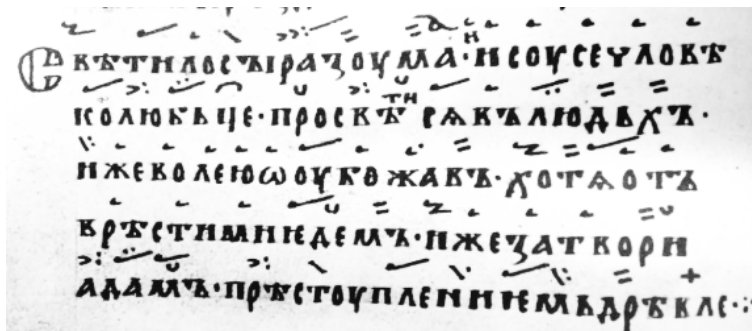 Свѣтилосъıразоума·исоусечловѣ
колюбьче·просвѣти сѧвълюдьхъ·
ижеволеюѡоубожавъ·хотѧотъ
врѣстимиедемъ·ижезатвори
адамъ·прѣстоуплениемьдрѣвле·: